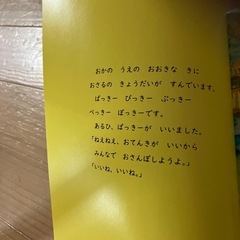 おかの うえの おおきな きに
おさるの きょうだいが すんでいます。
ぱっきー ぴっきー ぷっきー
ぺっきー ぽっきーです。
あるひ、ぱっきーが いいました。
「ねえねえ、おてんきが いいから
みんなで おさんぽしようよ。」
「いいね、いいね。」